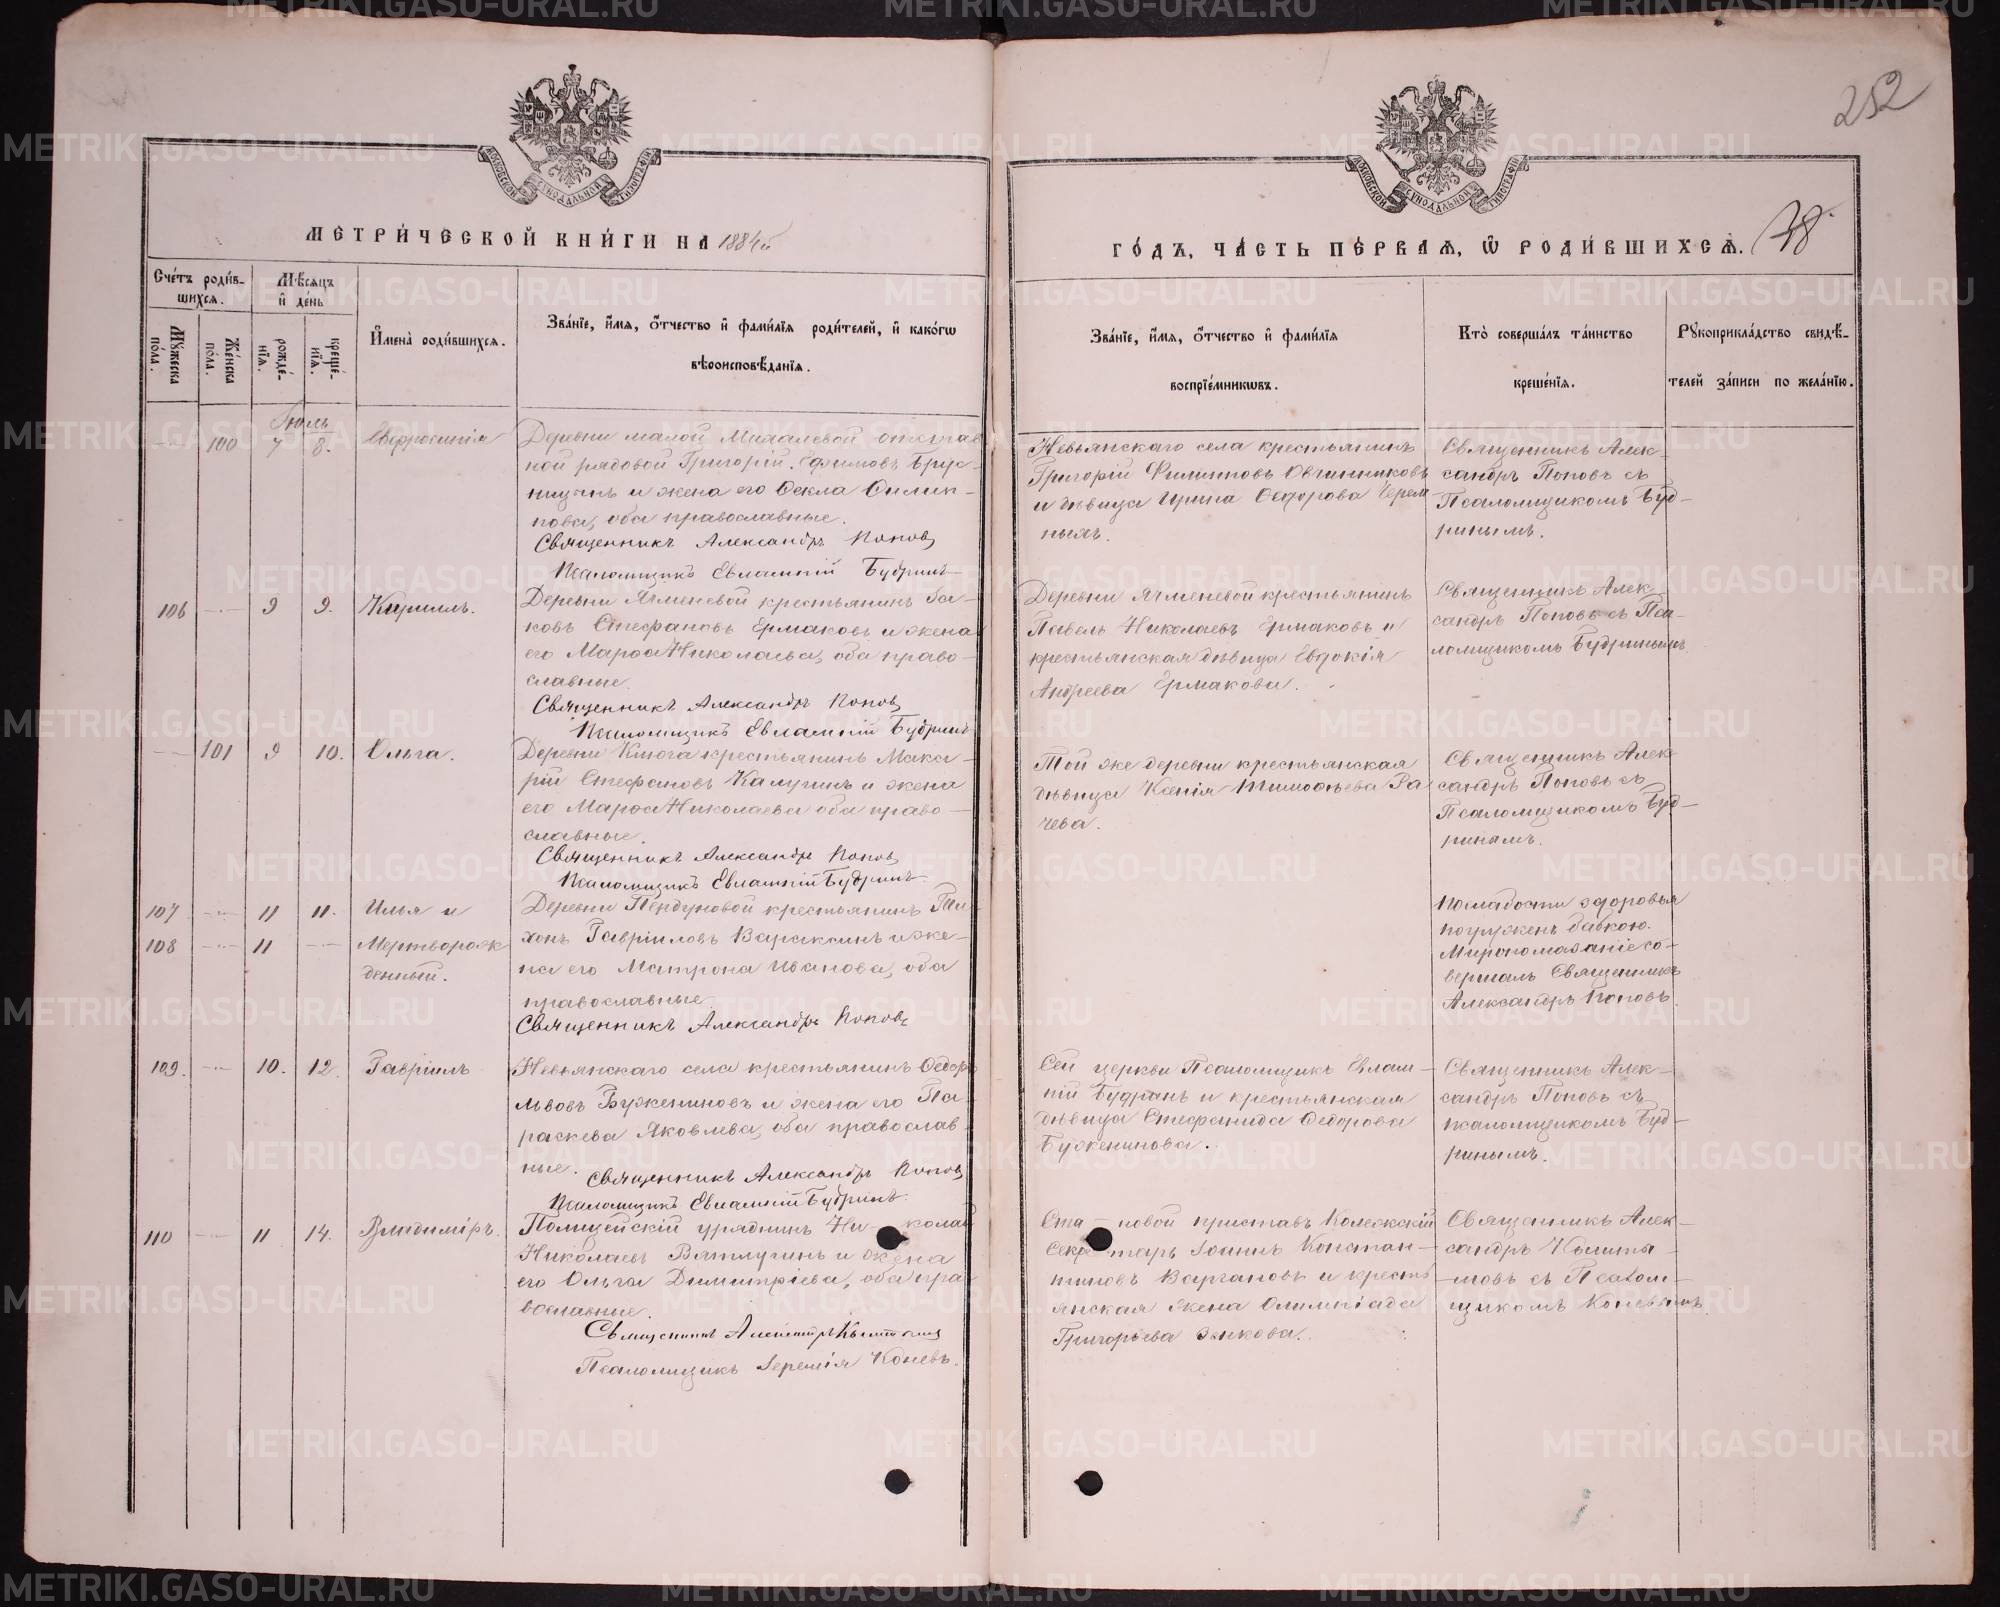 252
МОСКОВСКОЙ СѴНОДАЛЬНОЙ ТИПОГРАФІИ
МОСКОВСКОЙ СѴНОДАЛЬНОЙ ТИПОГРАФІИ
МЕТРИЧЕСКОЙ КНИГИ НА 1884й
ГОДЪ, ЧАСТЬ ПЕРВАЯ, Ѡ РОДИВШИХСЯ.
78
Счетъ родив-
шихся.
Мужеска
пола.
Женска
пола.
Мѣсяцъ
и день
рожде-
нія.
креще-
нія.
Имена родившихся.
Званіе, имя, отчество и фамилія родителей, и какогѡ
вѣроисповѣданія.
Званіе, имя, отчество и фамилія
воспріемниковъ.
Кто совершалъ таинство
крещенія.
Рукоприкладство свидѣ-
телей записи по желанію.
Іюль
100 7 8. Евфросинія
Деревни малой отстав
ной рядовой Григорій Ефимовъ Брус-
ницынъ и жена его Ѳекла Филип-
пова, оба православные.
Священникъ Александръ Поповъ
Псаломщикъ Евлампій Будринъ
Невьянскаго села крестьянинъ
Григорій Филипповъ Овчинниковъ
и дѣвица Ирина Ѳедорова Черем
ныхъ.
Священникъ Алек-
сандръ Поповъ съ
Псаломщикомъ Буд-
ринымъ.
106 9 9. Кириллъ.
Деревни Ячменевой крестьянинъ Іа-
ковъ Стефановъ Ермаковъ и жена
его Марѳа Николаева, оба право-
славные.
Священникъ Александръ Поповъ
Псаломщикъ Евлампій Будринъ
Деревни Ячменевой крестьянинъ
Павелъ Николаевъ Ермаковъ и
крестьянская дѣвица Евдокія
Андреева Ермакова.
Священникъ Алек-
сандръ Поповъ съ Пса-
ломщикомъ Будринымъ.
101 9 10. Ольга.
Деревни Ключа крестьянинъ Мака-
рій Стефановъ Калугинъ и жена
его Марѳа Николаева оба право-
славные.
Священникъ Александръ Поповъ
Псаломщикъ Евлампій Будринъ
Той же деревни крестьянская
дѣвица Ксенія Тимоѳеева Ра
чева.
Священникъ Алек-
сандръ Поповъ съ
Псаломщикомъ Буд-
ринымъ.
107 11 11. Илья и
108 11 Мертворож
денный.
Деревни Пердуновой крестьянинъ Ти-
хонъ Гавріиловъ Вараксинъ и же-
на его Матрона Иванова, оба
православные.
Священникъ Александръ Поповъ
По слабости здоровья
погруженъ бабкою.
Миропомазаніе со-
вершалъ Священникъ
Александръ Поповъ.
109. 10. 12. Гавріилъ
Невьянскаго села крестьянинъ Ѳедоръ
Львовъ Буженниновъ и жена его Па-
раскева Яковлева, оба православ-
ные. Священникъ Александръ Поповъ
Псаломщикъ Евлампій Будринъ.
Сей церкви Псаломщикъ Евлам-
пій Будринъ и крестьянская
дѣвица Стефанида Ѳедорова
Буженинова.
Священникъ Алек-
сандръ Поповъ съ
псаломщикомъ Буд-
ринымъ.
110 11 14. Владиміръ.
Полицейскій урядникъ Ни-колай
Николаевъ Вятлугинъ и жена
его Ольга Димитріева, оба пра-
вославные.
Священникъ
Псаломщикъ Іеремія Коневъ.
Ста-новой приставъ Колежскій
Секретарь Іоаннъ Констан-
тиновъ Варгановъ и кресть
янская жена Олимпіада
Григорьева Зенкова.
Священникъ Алек-
сандръ
съ Псалом-
щикомъ Коневымъ.